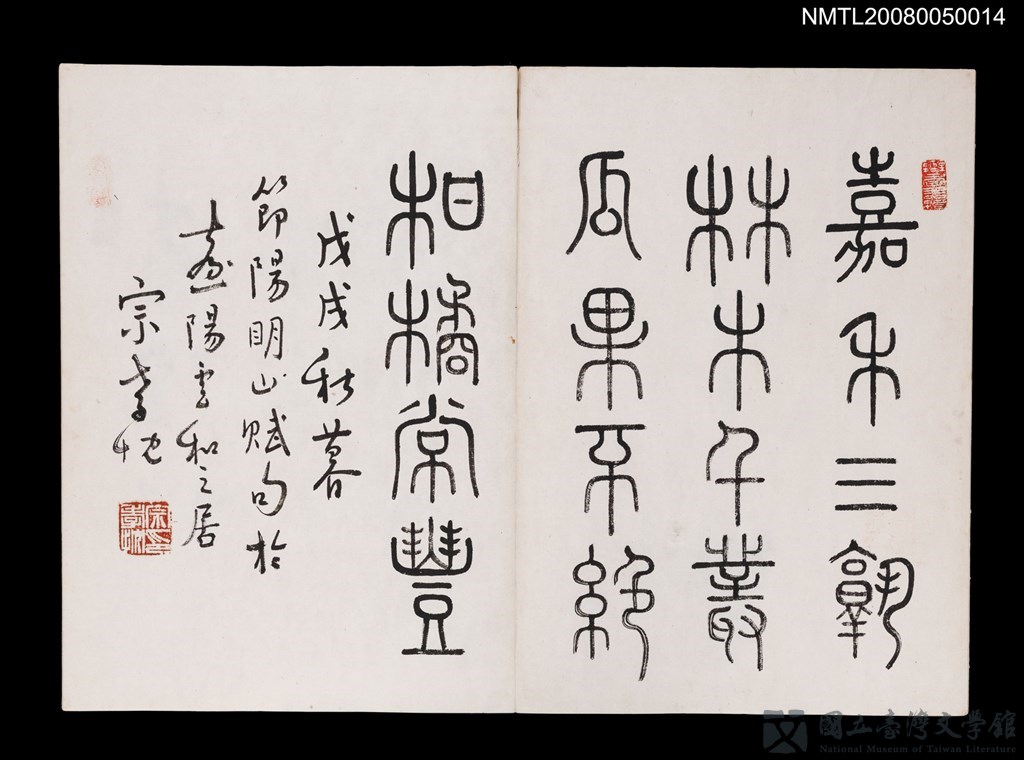 NMTL20080050014
嘉禾三孰
林木千叢
瓜果不絕
柑橘常豐
戊戌秋暮
節陽明山賦句於
臺陽雲和之居
宗孝忱
國立臺灣文學館
National Museum of Taiwan Literature